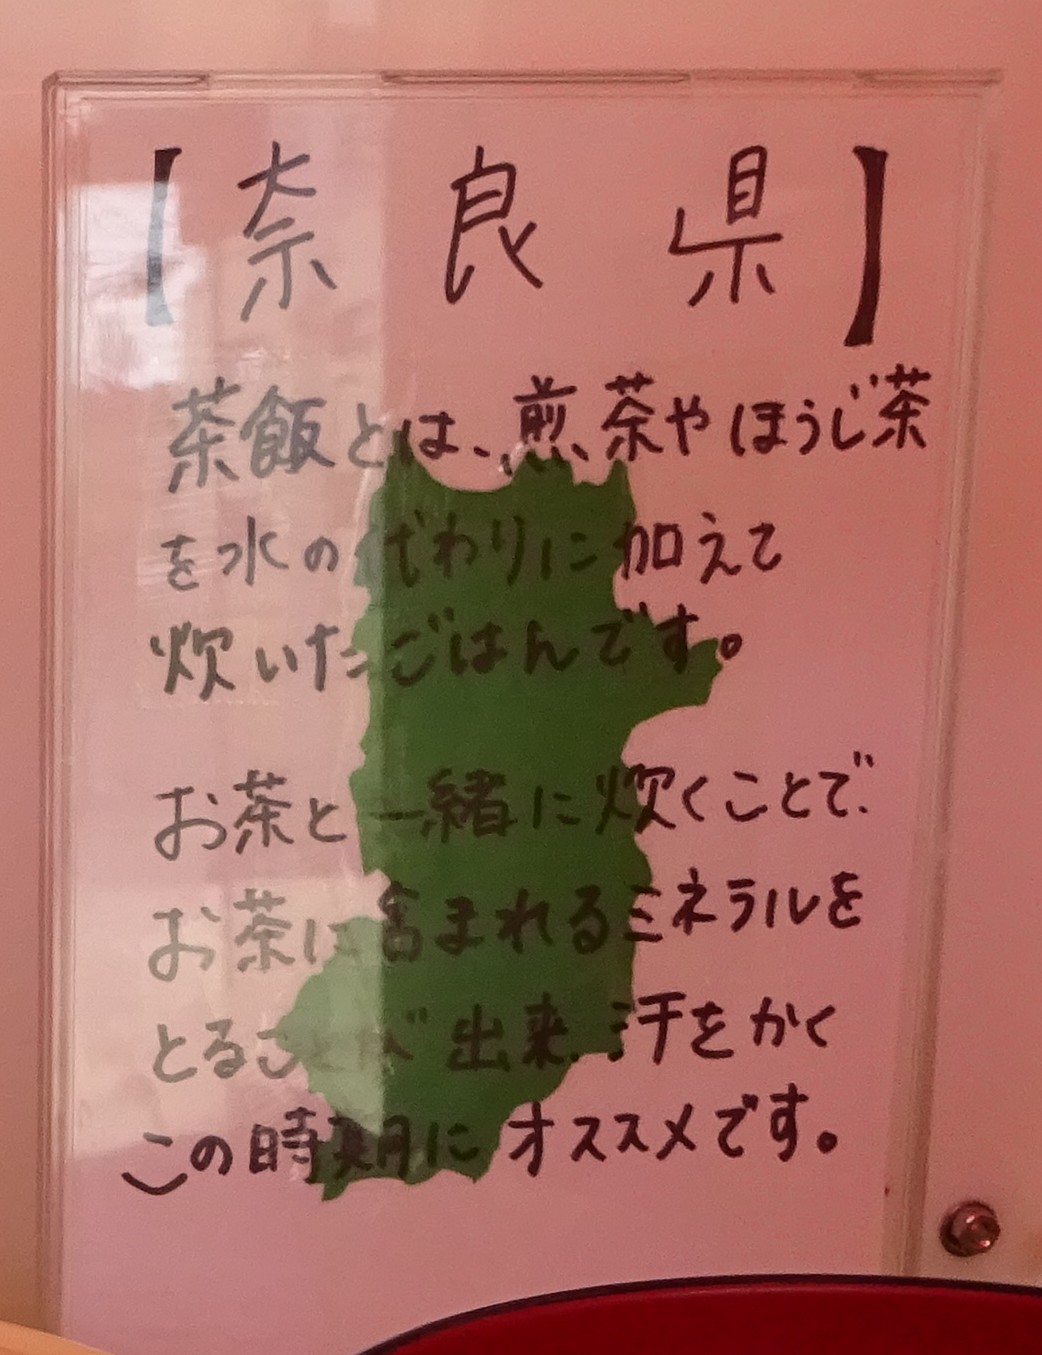 【奈良県】
茶飯とは、煎茶やほうじ茶
を水の代わりに加えて
炊いたごはんです。
お茶と一緒に炊くことで、
お茶に含まれるミネラルを
とることが出来、汗をかく
この時期にオススメです。